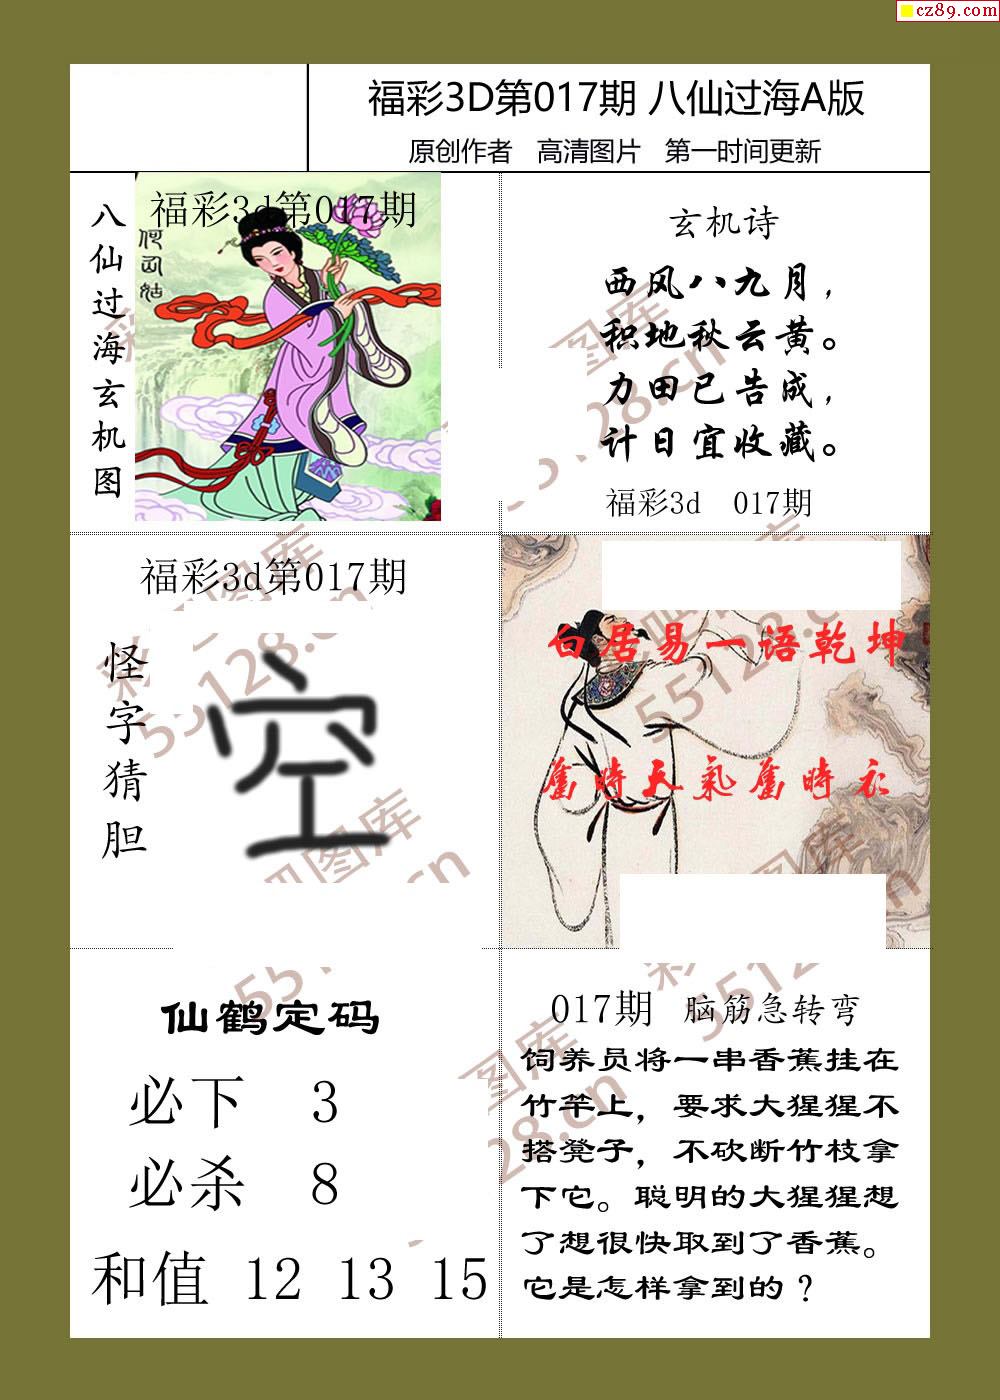 cz89.com
福彩3D第017期 八仙过海A版
原创作者 高清图片 第一时间更新
八仙过海玄机图
福彩3d第017期
何仙姑
玄机诗
西风八九月，
积地秋云黄。
力田已告成，
计日宜收藏。
福彩3d 017期
福彩3d第017期
怪字猜胆
空
白居易一语乾坤
旧时天气旧时衣
仙鹤定码
必下 3
必杀 8
和值 12 13 15
017期 脑筋急转弯
饲养员将一串香蕉挂在
竹竿上，要求大猩猩不
搭凳子，不砍断竹枝拿
下它。聪明的大猩猩想
了想很快取到了香蕉。
它是怎样拿到的？
彩吧图库
55128.cn